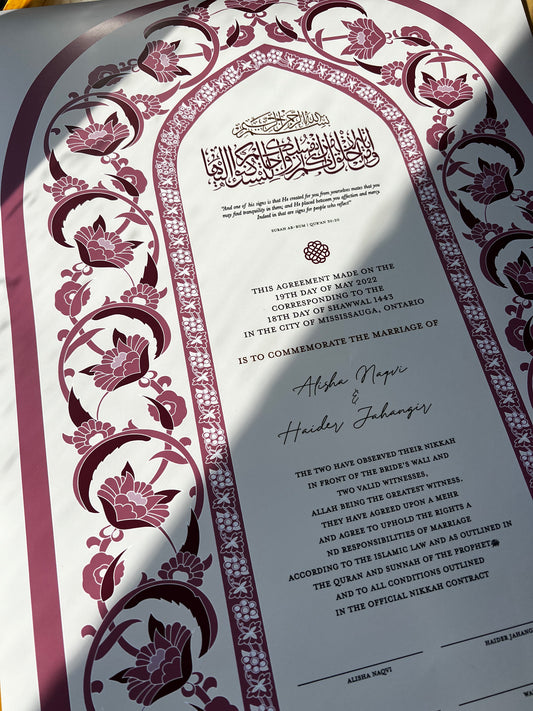 بسم الله الرحمن الرحيم
"And one of his signs is that He created for you from yourselves mates that you
may find tranquility in them; and He placed between you affection and mercy.
Indeed in that are signs for people who reflect".
SURAH AR-RUM | QUR'AN 30:20
THIS AGREEMENT MADE ON THE
19TH DAY OF MAY 2022
CORRESPONDING TO THE
18TH DAY OF SHAWWAL 1443
IN THE CITY OF MISSISSAUGA, ONTARIO
IS TO COMMEMORATE THE MARRIAGE OF
Alisha Naqvi
&
Haider Jahangir
THE TWO HAVE OBSERVED THEIR NIKKAH
IN FRONT OF THE BRIDE'S WALI AND
TWO VALID WITNESSES,
ALLAH BEING THE GREATEST WITNESS.
THEY HAVE AGREED UPON A MEHR
AND AGREE TO UPHOLD THE RIGHTS A
ND RESPONSIBILITIES OF MARRIAGE
ACCORDING TO THE ISLAMIC LAW AND AS OUTLINED IN
THE QURAN AND SUNNAH OF THE PROPHET ﷺ
AND TO ALL CONDITIONS OUTLINED
IN THE OFFICIAL NIKKAH CONTRACT
HAIDER JAHANG
ALISHA NAQVI
WA